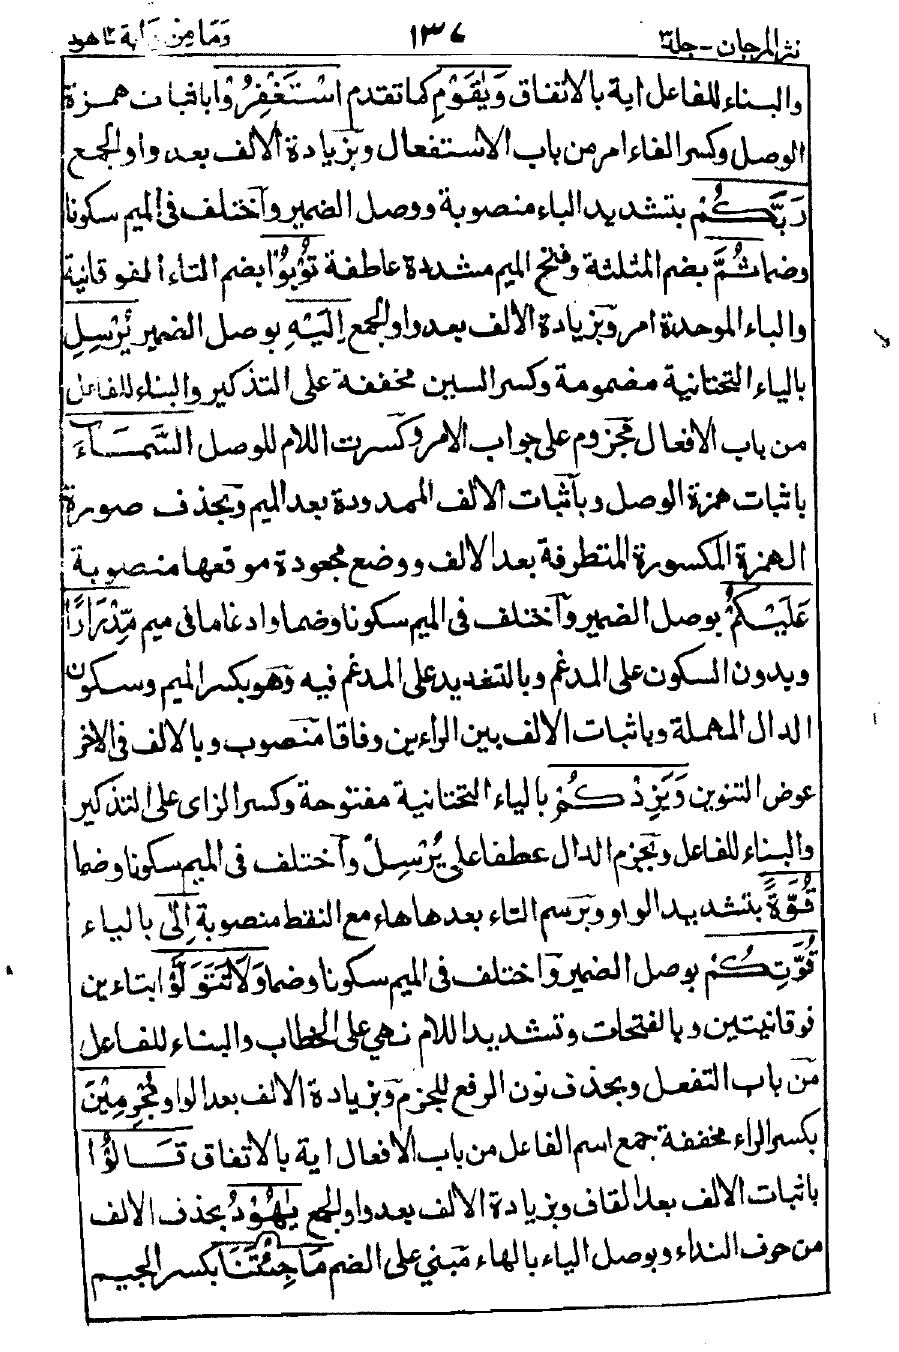 نثر المرجان - جلد٣ ١٣٧ ومامن دابة ١٢ هود
والبناء للفاعل اية بالاتفاق وَيٰقَوْمِ كما تقدم اسْتَغْفِرُوْا باثبات همزة
الوصل وكسر الفاء امر من باب الاستفعال وبزيادة الألف بعد واو الجمع
رَبَّكُمْ بتشديد الباء منصوبة ووصل الضمير وآختلف فى الميم سكونا
وضما ثُمَّ بضم المثلثة وفتح الميم مشددة عاطفة تُوْبُوْا بضم التاء الفوقانية
والباء الموحدة امر وبزيادة الألف بعد واو الجمع اِلَيْهِ بوصل الضمير يُرْسِلِ
بالياء التحتانية مضمومة وكسر السين مخففة على التذكير والبناء للفاعل
من باب الافعال مجزوم على جواب الامر وكسرت اللام للوصل السَّمَآءَ
باثبات همزة الوصل وبآثبات الالف الممدودة بعد الميم وبحذف صورة
الهمزة المكسورة المتطرفة بعد الالف ووضع مجعودة موقعها منصوبة
عَلَيْكُمْ بوصل الضمير وآختلف فى الميم سكونا وضما وادغاما فى ميم مِّدْرَارًا
وبدون السكون على المدغم وبالتشديد على المدغم فيه وهو بكسر الميم وسكون
الدال المهملة وباثبات الالف بين الراءين وفاقا منصوب وبالالف فى الاخر
عوض التنوين وَيَزِدْكُمْ بالياء التحتانية مفتوحة وكسر الزاى على التذكير
والبناء للفاعل وبجزم الدال عطفا على يُرْسِلْ وآختلف فى الميم سكونا وضما
قُوَّةً بتشديد الواو وبرسم التاء بعدها هاء مع النقط منصوبة اِلٰى بالياء
قُوَّتِكُمْ بوصل الضمير وآختلف فى الميم سكونا وضما وَلَا تَتَوَلَّوْا بتاءين
فوقانيتين وبالفتحات وتشديد اللام نهي على الخطاب والبناء للفاعل
من باب التفعل وبحذف نون الرفع للجزم وبزيادة الالف بعد الواو مُجْرِمِيْنَ
بكسر الراء مخففة جمع اسم الفاعل من باب الافعال اية بالاتفاق قَالُوْا
باثبات الالف بعد القاف وبزيادة الألف بعد واو الجمع يٰهُوْدُ بحذف الالف
من حرف النداء وبوصل الياء بالهاء مبني على الضم مَا جِئْتَنَا بكسر الجيم